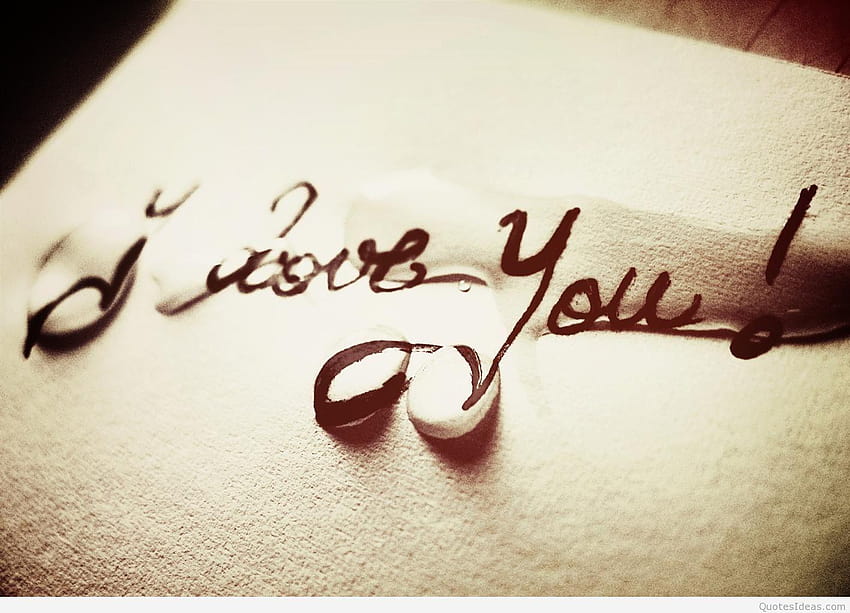 I love You!
QuotesIdeas.com